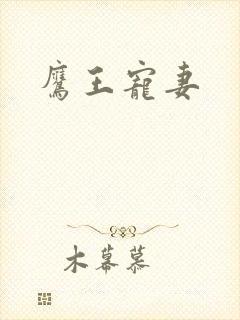 鷹王寵妻
木幕慕